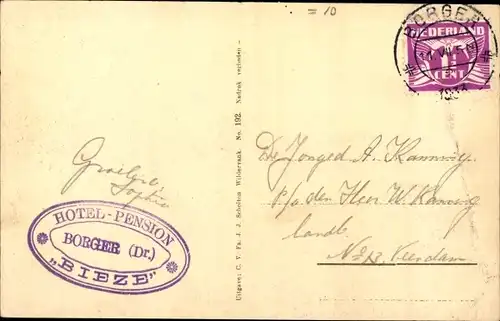 = 10
BORGER
NEDERLAND
1½
CENT
Groetjes
Sophie
HOTEL-PENSION
BORGER (Dr.)
„BIEZE”
Uitgave: C. V. Fa. J. J. Scholten Wildervank. No. 192. Nadruk verboden -
De Jonged A.
p/a den Heer W.
No 13. Veendam